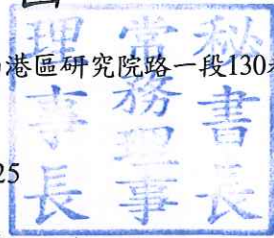 港區研究院路一段130
25
秘書長
常務理事
理事長